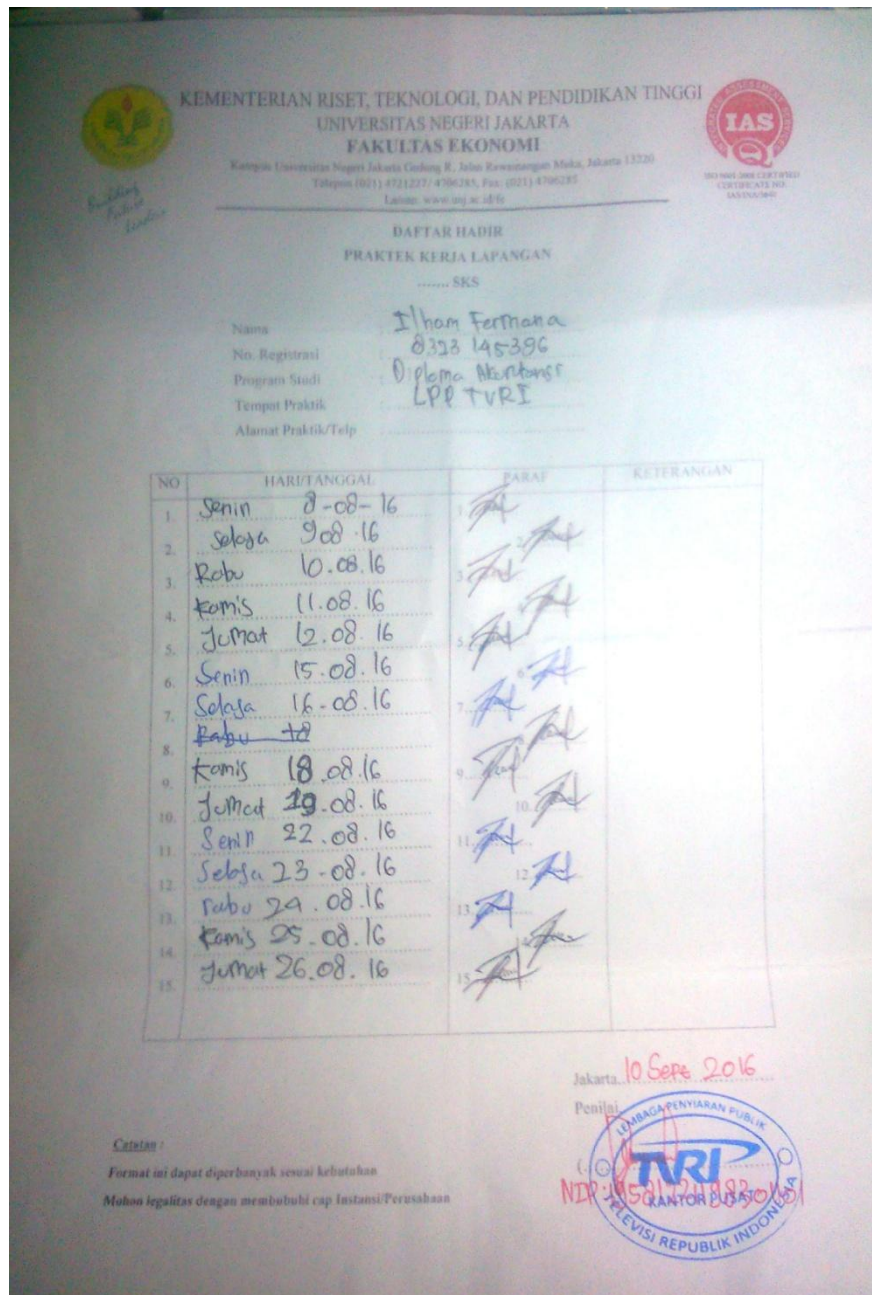 KEMENTERIAN RISET, TEKNOLOGI, DAN PENDIDIKAN TINGGI
UNIVERSITAS NEGERI JAKARTA
FAKULTAS EKONOMI
Kampus Universitas Negeri Jakarta Gedung R, Jalan Rawamangun Muka, Jakarta 13220
Telepon (021) 4721227/ 4706285, Fax: (021) 4706285
Laman: www.unj.ac.id/fe
Building
Future
Leaders
IAS
ISO 9001:2008 CERTIFIED
CERTIFICATE NO.
DAFTAR HADIR
PRAKTEK KERJA LAPANGAN
....... SKS
Nama Ilham Fermana
No. Registrasi : 8323 145396
Program Studi : Diploma Akuntansi
Tempat Praktik LPP TVRI
Alamat Praktik/Telp :
NO HARI/TANGGAL PARAF KETERANGAN
1. Senin 8-08-16 1.
2. Selasa 9 08.16 2.
3. Rabu 10.08.16 3.
4. Kamis 11.08.16
5. Jumat 12.08.16 5.
6. Senin 15.08.16 6.
7. Selasa 16-08.16 7.
8. Rabu 18
9. Kamis 18.08.16 9.
10. Jumat 19.08.16 10.
11. Senin 22.08.16 11.
12. Selasa 23-08.16 12.
13. rabu 24.08.16 13.
14. Kamis 25-08.16
15. Jumat 26.08.16 15.
Jakarta, 10 Sept 2016
Penilai
LEMBAGA PENYIARAN PUBLIK
TVRI
KANTOR PUSAT
TELEVISI REPUBLIK INDONESIA
NIP:
Catatan :
Format ini dapat diperbanyak sesuai kebutuhan
Mohon legalitas dengan membubuhi cap Instansi/Perusahaan